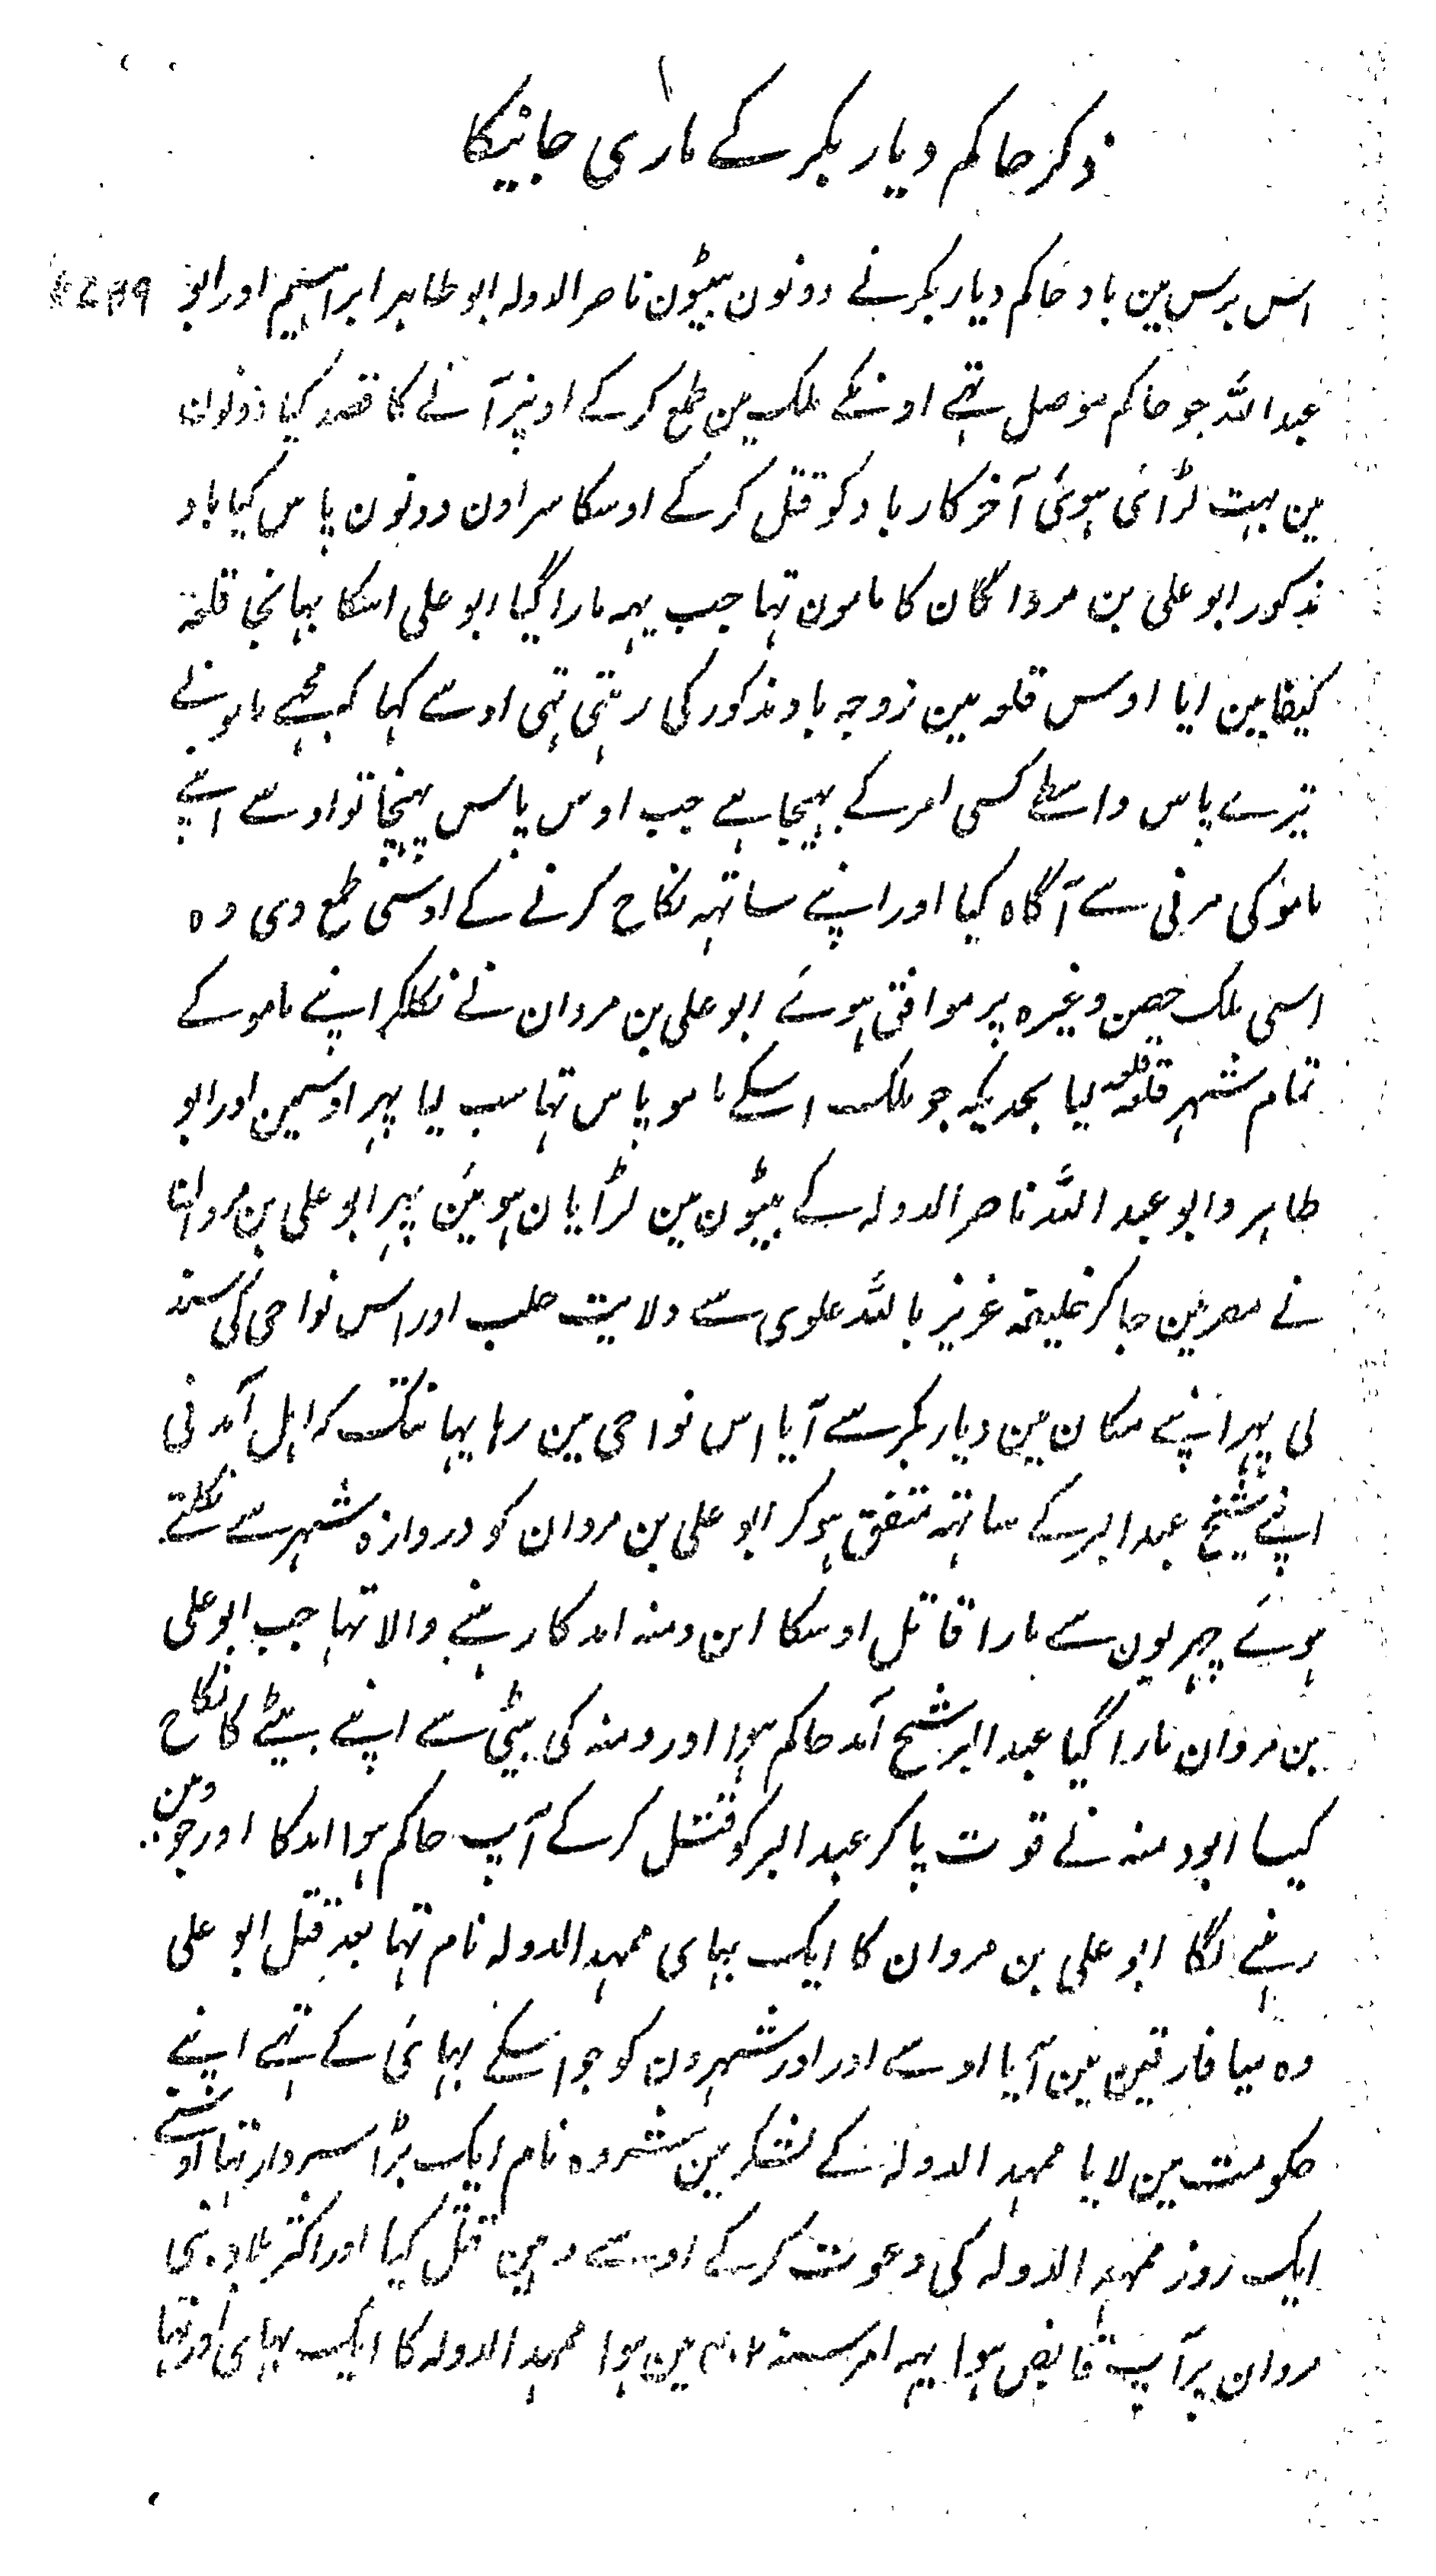 ذکر حاکم دیار بکر کے ماری جانیکا
اس برس مین باد حاکم دیار بکر نے دونون بیٹون ناصر الدولہ ابو طاہر ابراہیم اور ابو
عبد اللہ جو حاکم موصل تہے اونکے ملک مین طمع کر کے اونپر آنے کا قصد کیا دونون
مین بہت لڑائی ہوئی آخر کار باد کو قتل کر کے اوسکا سر اون دونون پاس گیا باد
مذکور ابو علی بن مروا کان کا مامون تہا جب یہہ مارا گیا ابو علی اسکا بہانجا قلعہ
کیفا مین ایا اوس قلعہ مین زوجہ باد مذکور کی رہتی تہی اوسے کہا کہ مجہے مامو نے
تیرے پاس واسطے کسی امر کے بہیجا ہے جب اوس پاس پہنچا تو اوسے اپنے
مامو کی مرنی سے آگاہ کیا اور اپنے ساتہہ نکاح کرنے کے اوسنی طمع دی وہ
اسی ملک حصن وغیرہ پر موافق ہوئے ابو علی بن مروان نے نکلکر اپنے مامو کے
تمام شہر قلعہ قلعہ لیا بحدیکہ جو ملک اسکے مامو پاس تہا سب لیا پہر اوسمین اور ابو
طاہر و ابو عبد اللہ ناصر الدولہ کے بیٹون مین لڑایان ہوئین پہر ابو علی بن مروان
نے مصر مین جا کر خلیفہ عزیز باللہ علوی سے ولایت حلب اور اس نواحی کی سند
لی پہر اپنے مکان مین دیار بکر سے آیا اس نواحی مین رہا یہانتک کہ اہل آمد نی
اپنے شیخ عبد البر کے ساتہہ متفق ہو کر ابو علی بن مروان کو دروازہ شہر سے نکلتے
ہوئے چہریون سے مارا قاتل اوسکا ابن دمنہ امد کا رہنے والا تہا جب ابو علی
بن مروان مارا گیا عبد البر شیخ آمد حاکم ہوا اور دمنہ کی بیٹی سے اپنے بیٹے کا نکاح
کیا ابودمنہ نے قوت پا کر عبد البر کو قتل کر کے آپ حاکم ہوا امد کا اور جو
رہنے لگا ابو علی بن مروان کا ایک بہای ممہد الدولہ نام تہا بعد قتل ابو علی
وہ میا فارقین مین آیا اوسے اور اور شہرون کو جو اسکے بہائی کے تہے اپنے
حکومت مین لایا ممہد الدولہ کے لشکر مین شروہ نام ایک بڑا سردار تہا اوسنے
ایک روز ممہد الدولہ کی دعوت کر کے اوسے وہین قتل کیا اور اکثر بلاد بنی
مروان پر آپ قابض ہوا یہہ امر سنہ ۴۰۲ مین ہوا ممہد الدولہ کا ایک بہای اور تہا